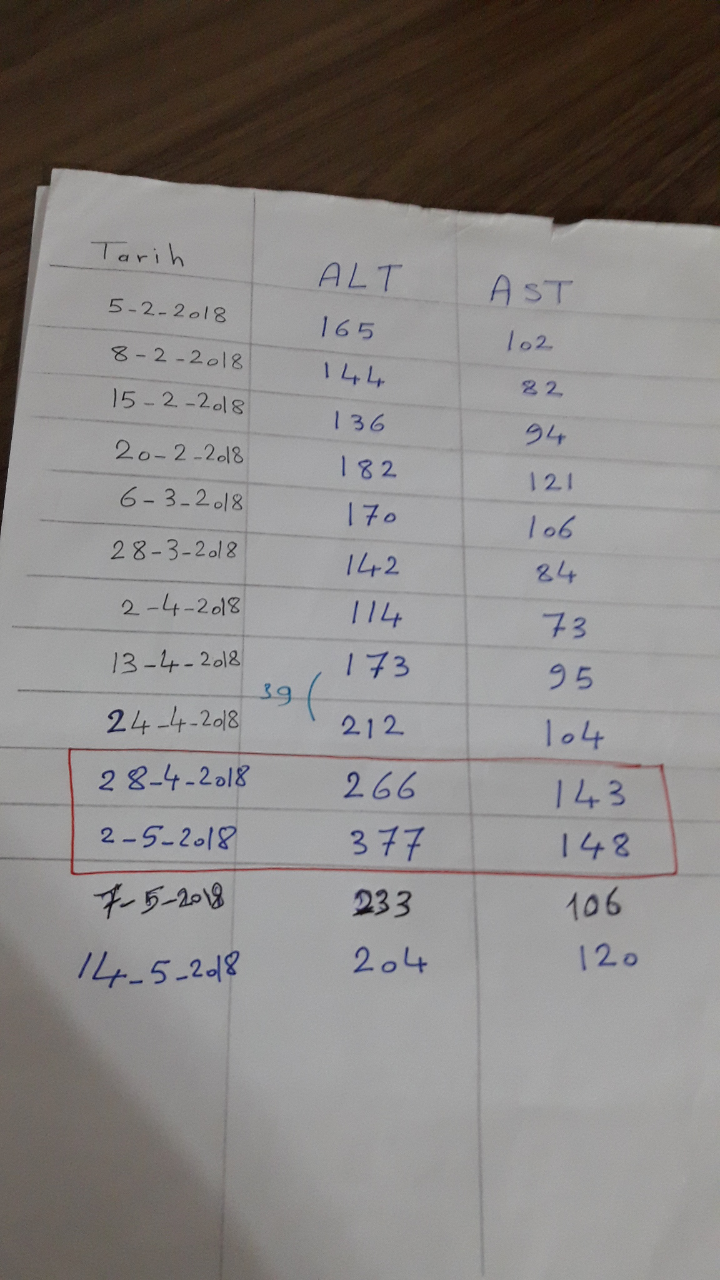 Tarih ALT AST
5-2-2018 165 102
8-2-2018 144 82
15-2-2018 136 94
20-2-2018 182 121
6-3-2018 170 106
28-3-2018 142 84
2-4-2018 114 73
13-4-2018 173 95
39 (
24-4-2018 212 104
28-4-2018 266 143
2-5-2018 377 148
7-5-2018 233 106
14-5-2018 204 120